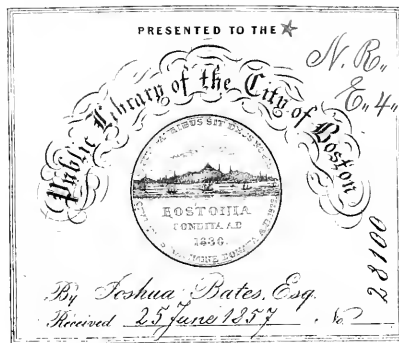 PRESENTED TO THE
N. R.
E. 4.
Public Library of the City of Boston
BOSTONIA
CONDITA A.D.
1630.
By Joshua Bates, Esq.
Received 25 June 1857. No.
28100